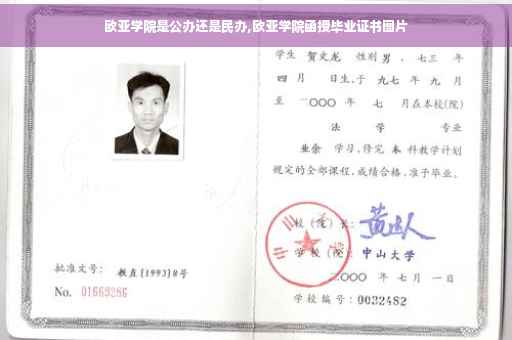 欧亚学院是公办还是民办,欧亚学院函授毕业证书图片
学生 贺文龙 性别 男 、七三 年
四 月 日生,于 九七 年 九 月
至 二〇〇〇 年 七 月在本校(院)
法 学 专业
业余 学习,修完 本 科教学计划
规定的全部课程,成绩合格,准予毕业。
校 (院) 长:
学 校 (院): 中山大学
二〇〇〇 年 七 月 一 日
批准文号: 教直[1993]8号
No. 01669286
学校编号: 0032482